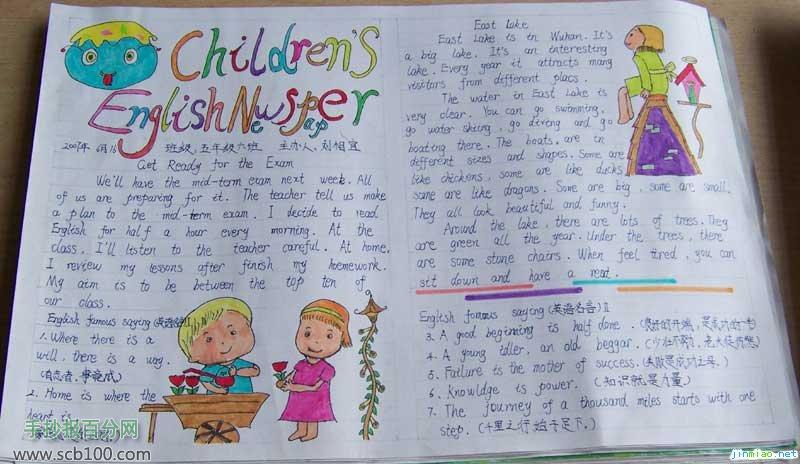 Children's
English Newspaper
2007年 6月15 班级：五年级六班 主办人：刘相宜
Get Ready for the Exam
We'll have the mid-term exam next week. All
of us are preparing for it. The teacher tell us make
a plan to the mid-term exam. I decide to read
English for half a hour every morning. At the
class. I'll listen to the teacher careful. At home.
I review my lessons after finish my homework.
My aim is to be between the top ten of
our class.
English famous saying (英语名言) I
1. Where there is a
will, there is a way.
(有志者，事竟成)
2. Home is where the
heart is
East Lake
East Lake is in Wuhan. It's
a big lake. It's an interesting
lake. Every year it attracts many
visitors from different placs.
The water in East Lake is
very clear. You can go swimming,
go water skiing, go diving and go
boating there. The boats, are in
different sizes and shapes. Some are
like chickens, some are like ducks
some are like dragons. Some are big, some are small.
They all look beautiful and funny.
Around the lake, there are lots of trees. They
are green all the year. Under the trees, there
are some stone chairs. When feel tired, you can
sit down and have a rest.
English famous saying (英语名言) II
3. A good beginning is half done. (良好的开端，是成功的一半)
4. A young idler, an old beggar. (少壮不努力，老大徒伤悲)
5. Failure is the mother of success. (失败是成功之母。)
6. Knowldge is power. (知识就是力量)
7. The journey of a thousand miles starts with one
step. (千里之行始于足下。)
手抄报百分网
www.scb100.com
jinmiao.net